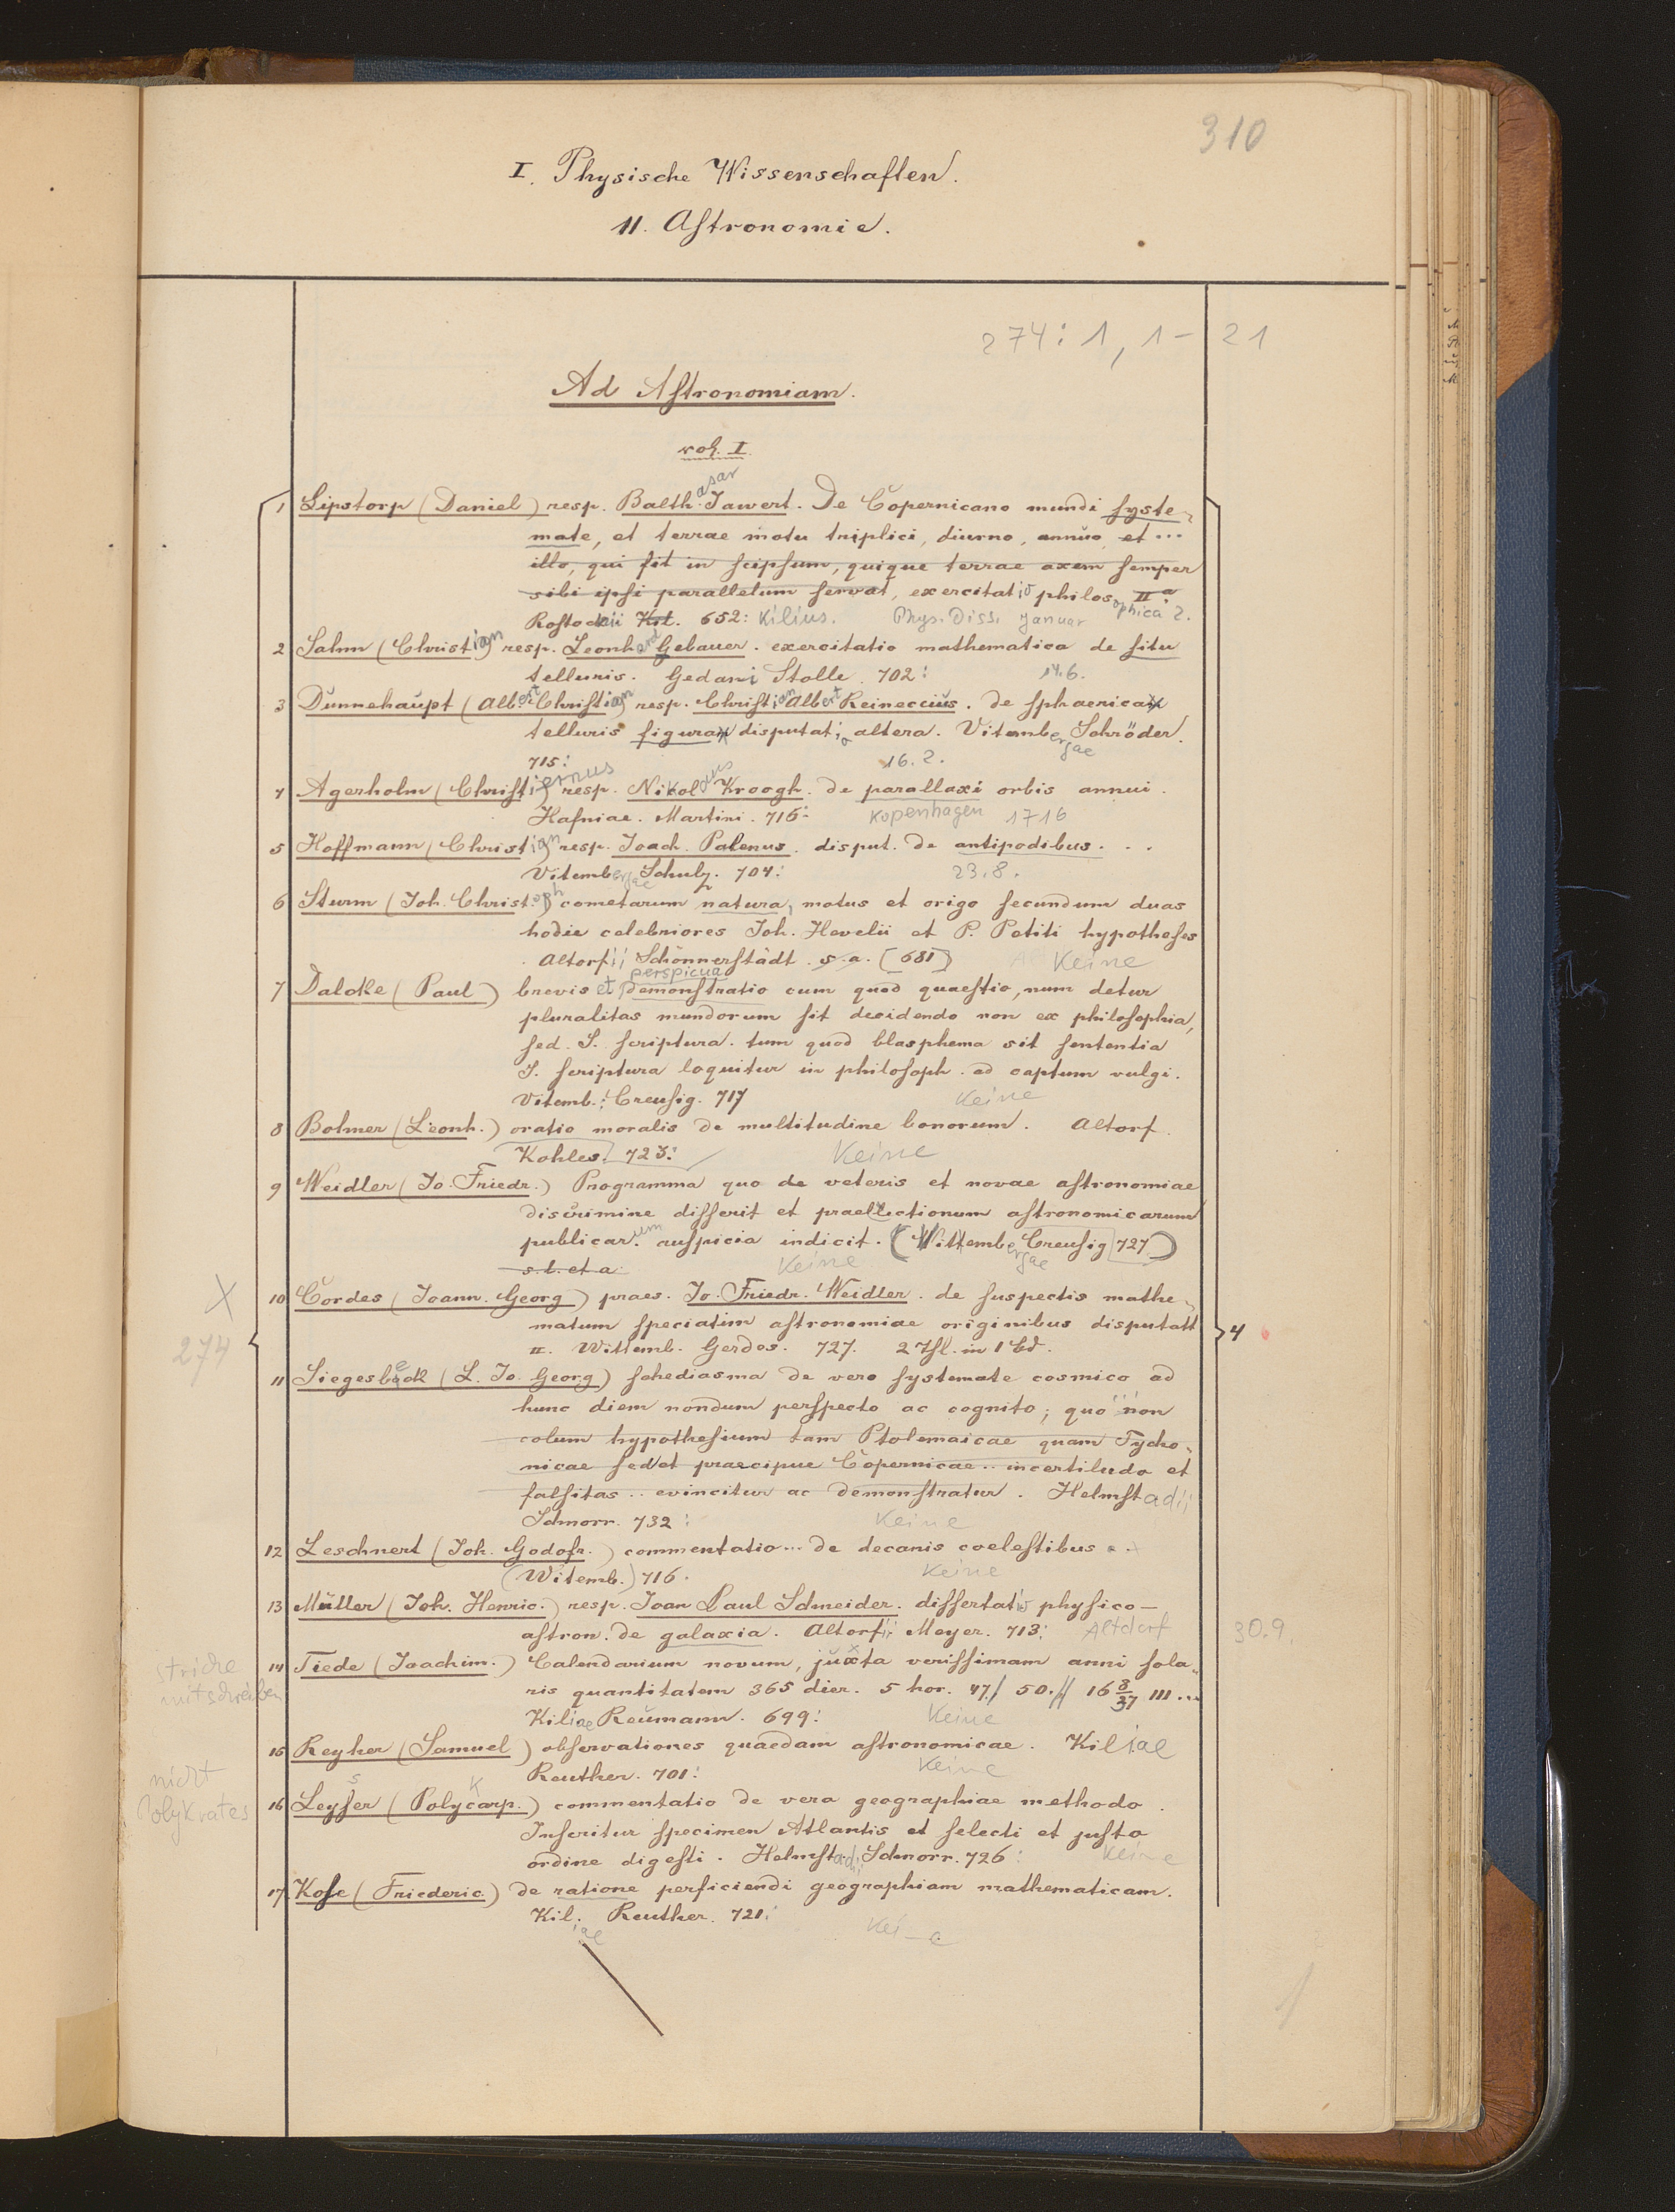 310
I. Physische Wissenschaften.
11. Astronomie.
274: 1, 1- 21
Ad Astronomiam.
vol. I.
1 Lipstorp (Daniel) resp. Balthasar Jawert. De Copernicano mundi syste-
mate, et terrae motu triplici, diurno, annuo et ...
illo, qui fit in seipsum, quique terrae axem semper
sibi ipsi parallelum servat, exercitatio philosophica IIa. 2.
Rostockii Kil. 652: Kilius. Phys. Diss. Januar
2 Sahm (Christian) resp. Leonhard Gebauer. exercitatio mathematica de situ
telluris. Gedani Stolle. 702: 14.6.
3 Dünnehaupt (Albert Christian) resp. Christian Albert Reineccius. de sphaerica
telluris figura disputatio altera. Vitembergae Schröder.
715: 16.2.
4 Agerholm (Christiernus) resp. Nikolaus Kroogh. de parallaxi orbis annui.
Hafniae. Martini. 716: Kopenhagen 1716
5 Hoffmann (Christian) resp. Joach. Palenus. disput. de antipodibus. . .
Vitembergae Schulz. 704: 23.8.
6 Sturm (Joh. Christoph) cometarum natura, motus et origo secundum duas
hodie celebriores Joh. Hevelii et P. Petiti hypotheses
Altorfii Schönnerstädt. s. a. [681] Keine
7 Dalcke (Paul) brevis et perspicua demonstratio cum quod quaestio, num detur
pluralitas mundorum sit decidendo non ex philosophia,
sed S. scriptura. tum quod blasphema sit sententia
S. scriptura loquitur in philosoph. ad captum vulgi.
Vitemb.: Creusig. 717 Keine
8 Bohner (Leonh.) oratio moralis de multitudine bonorum. Altorf.
Kohles. 723: Keine
9 Weidler (Jo. Friedr.) Programma quo de veteris et novae astronomiae
discrimine disserit et praelectionum astronomicarum
publicarum auspicia indicit. (Wittembergae Creusig 727)
s. l. et a. Keine
X
274
10 Cordes (Joann. Georg) praes. Jo. Friedr. Weidler. de suspectis mathe-
matum speciatim astronomiae originibus disputatt
II. Wittemb. Gerdes. 727. 2 Thl. in 1 Bd.
4
11 Siegesbeck (L. Jo. Georg) schediasma de vero systemate cosmico ad
hunc diem nondum perspecto ac cognito; quo non
solum hypothesium tam Ptolemaicae quam Tycho-
nicae sed et praecipue Copernicae .. incertitudo et
falsitas .. evincitur ac demonstratur. Helmstadii
Schnorr. 732: Keine
12 Leschnert (Joh. Godofr.) commentatio ... de decanis coelestibus . .
(Witemb.) 716. Keine
13 Müller (Joh. Henric.) resp. Joan Paul Schneider. dissertatio physico-
astron. de galaxia. Altorfii Meyer. 713: Altdorf 30.9.
striche
mitschreiben
14 Tiede (Joachim.) Calendarium novum, juxta verissimam anni sola-
ris quantitatem 365 dier. 5 hor. 47 / 50 // 16 8/37 III ...
Kiliae Reumann. 699: Keine
15 Reyher (Samuel) observationes quaedam astronomicae. Kiliae
Reuther. 701: Keine
nicht
Polykrates
16 Leyser (Polycarp.) commentatio de vera geographiae methodo.
Inseritur specimen Atlantis et selecti et justo
ordine digesti. Helmstadii Schnorr. 726: Keine
17 Kose (Friederic.) de ratione perficiendi geographiam mathematicam.
Kiliae Reuther. 721: Keine
1